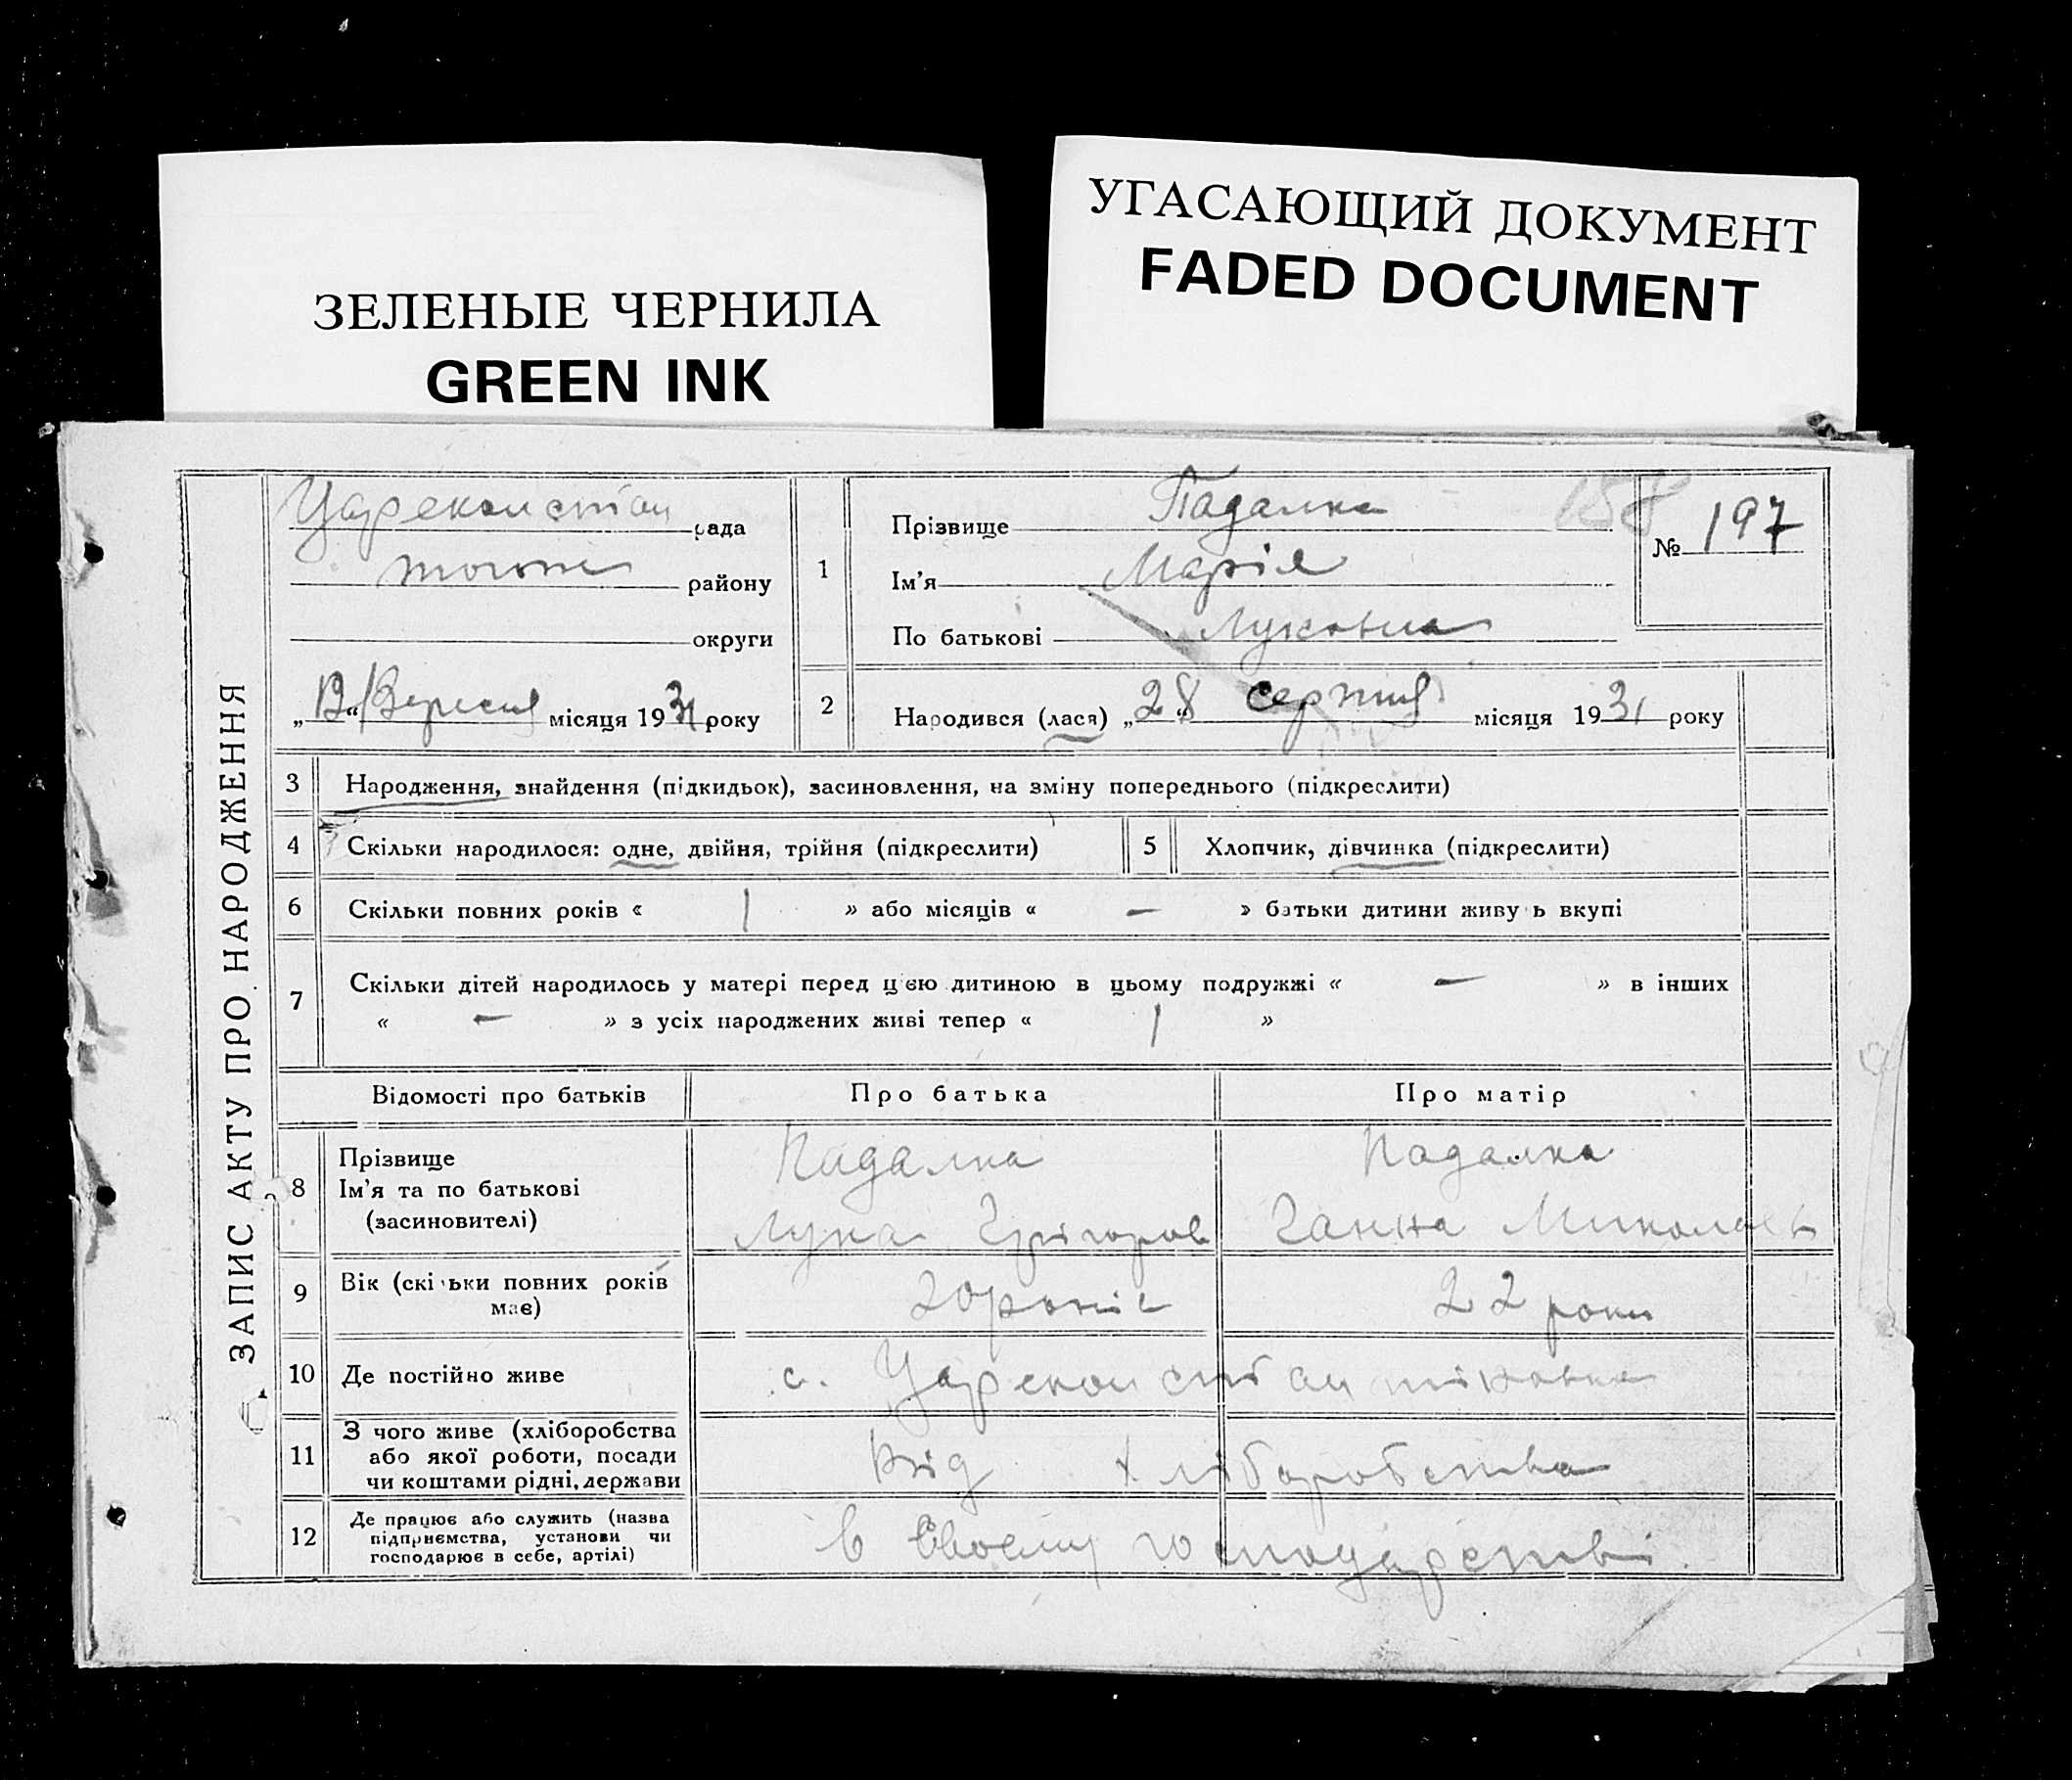 ЗЕЛЕНЫЕ ЧЕРНИЛА
GREEN INK
УГАСАЮЩИЙ ДОКУМЕНТ
FADED DOCUMENT
ЗАПИС АКТУ ПРО НАРОДЖЕННЯ
Царекконстан рада
району
округи
„12“ Вересня місяця 1931 року
1
Прізвище Падалка
Ім'я Марія
По батькові Луковна
158
№ 197
2 Народився (лася) „28“ серпня місяця 1931 року
3 Народження, знайдення (підкидьок), засиновлення, на зміну попереднього (підкреслити)
4 Скільки народилося: одне, двійня, трійня (підкреслити)
5 Хлопчик, дівчинка (підкреслити)
6 Скільки повних років « 1 » або місяців « — » батьки дитини живу ь вкупі
7 Скільки дітей народилось у матері перед цією дитиною в цьому подружжі « — » в інших
« — » з усіх народжених живі тепер « 1 »
Відомості про батьків Про батька Про матір
8 Прізвище
Ім'я та по батькові
(засиновителі)
Падалка
Лука Григоров
Падалка
Ганна Миколаєв
9 Вік (скі ьки повних років
має)
20 років 22 роки
10 Де постійно живе с. Цареконстантиновка
11 З чого живе (хліборобства
або якої роботи, посади
чи коштами рідні, держави
Від хліборобства
12 Де працює або служить (назва
підприємства, установи чи
господарює в себе, артілі)
в своєму господарстві.